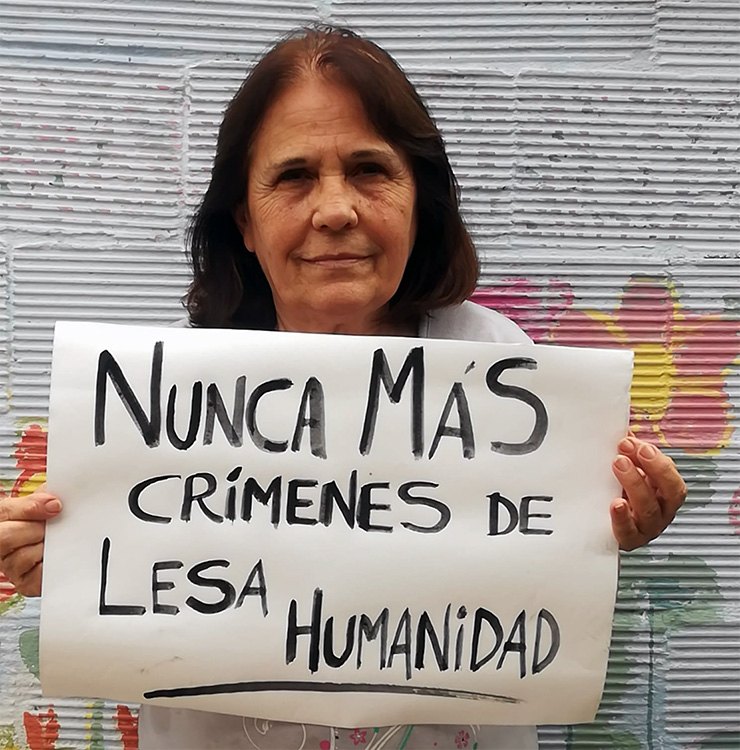 NUNCA MÁS
CRÍMENES DE
LESA
HUMANIDAD